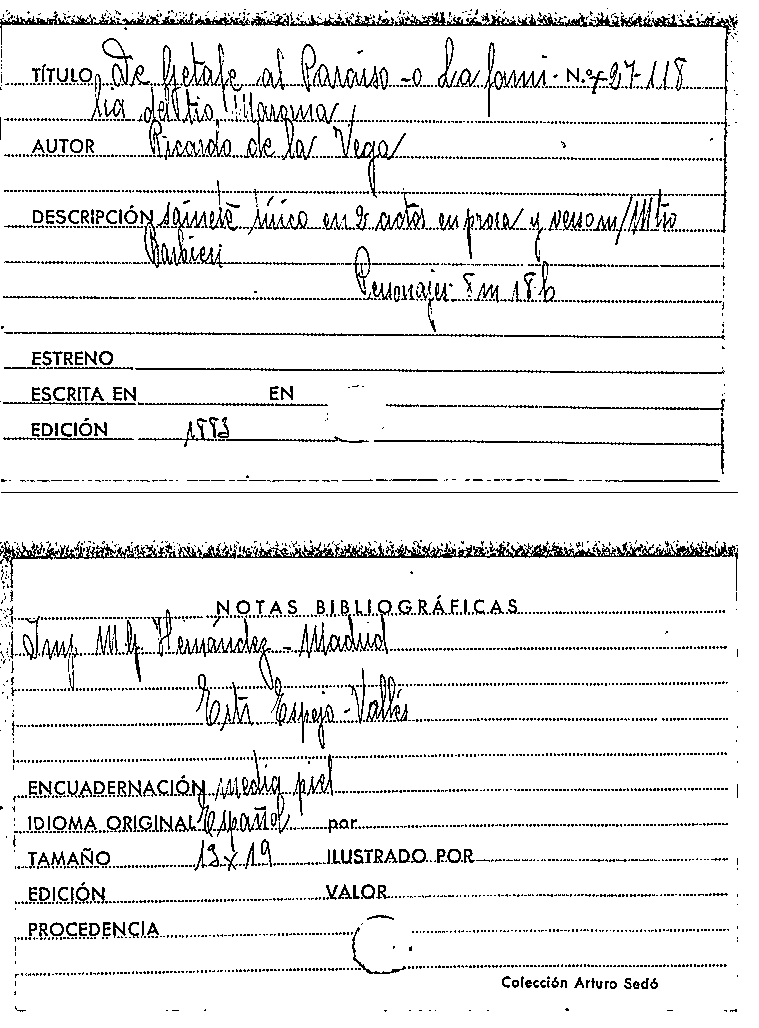 TÍTULO De Getafe al Paraiso - o La fami- N.º 27-118
lia del tio Maroma
AUTOR Ricardo de la Vega
DESCRIPCIÓN sainete lírico en 2 actos en prosa y verso m/ Mtro
Barbieri
Personajes 8 m 18 h
ESTRENO
ESCRITA EN EN
EDICIÓN 1883
NOTAS BIBLIOGRÁFICAS
Imp M g Hernández - Madrid
Estr Espejo - Vallés
ENCUADERNACIÓN media piel
IDIOMA ORIGINAL Español por
TAMAÑO 13 x 19 ILUSTRADO POR
EDICIÓN VALOR
PROCEDENCIA
Colección Arturo Sedó